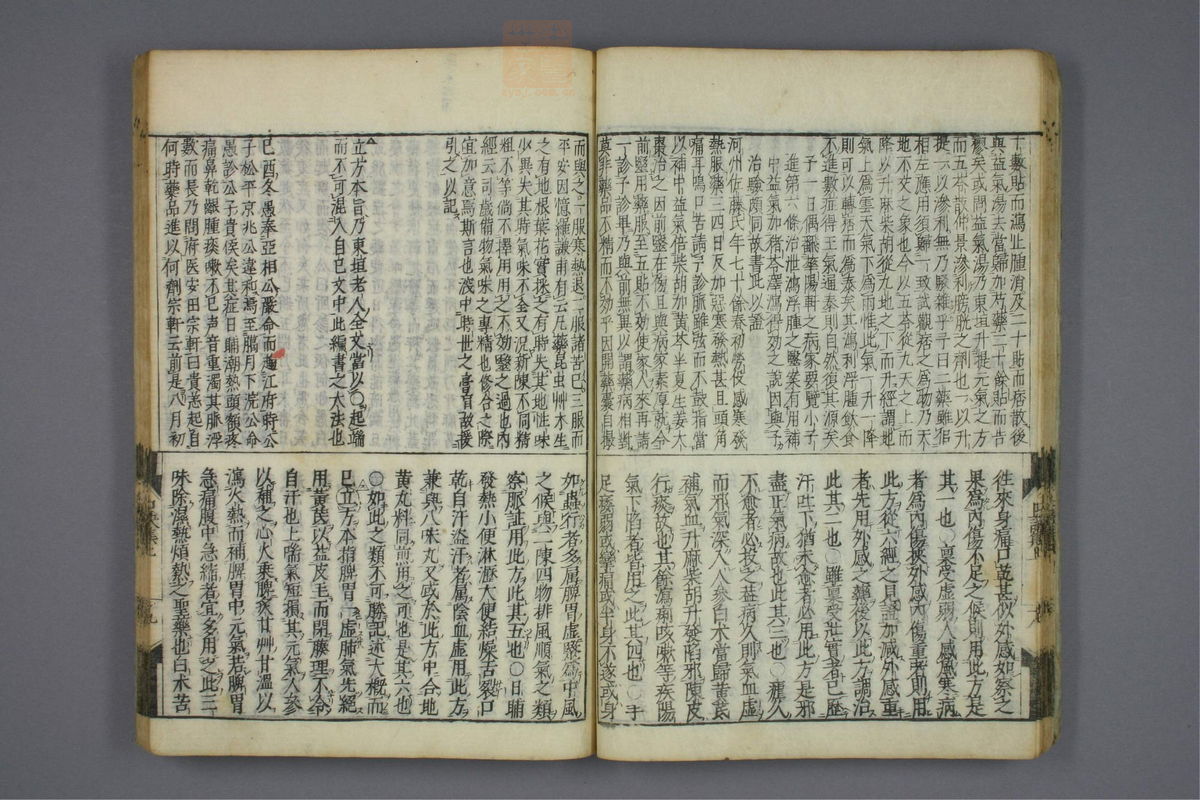 十數貼而瀉止腫消及二十貼而痞散後
與益氣湯去當歸加芍藥二十餘貼而吉
相左應用須歸一致試觀痞之為物乃天
地不交之象也今以五苓從九天之上而
降以升麻柴胡從九地之下而升經謂地
氣上為雲天氣下為雨惟此氣一升一降
則可以轉痞而為泰矣其瀉利浮腫飲食
不進數症得王氣通泰則自然復其源矣
進第六條治泄瀉浮腫之醫案有用補
中益氣加猪苓澤瀉得効之說因與予
治驗頗同故書此以證
河州佐藤氏年七十餘春初勞伇感寒發
熱服藥三四日反加惡寒發熱甚且頭角
痛耳鳴口苦請予診脈雖弦而不鼓指當
以補中益氣倍柴胡加黃芩半夏生姜大
棗治之因前醫在傷且與病家素厚就令
前醫用藥服至五貼不効使家人來再請
一診予診畢乃與前無異以謂藥病相對
莫非藥品不精而不効乎因開藥囊自撮
往來身痛口苦甚似外感如察之
果為內傷不足之候則用此方是
其一也○稟受虛弱人感風寒病
者為內傷挾外感內傷重者則用
此方從六經之見證加減外感重
者先用外感之藥後以此方調治
此其二也○雖稟受壯實者已歷
汗吐下猶未愈者必用此方是邪
盡正氣病故也此其三也○雜久
不愈者必投之蓋病久則氣血虛
而邪氣深入人參白朮當歸黃芪
補氣血升麻柴胡升發陷邪陳皮
行痰故也其餘瀉痢咳嗽等疾陽
氣下陷者皆用之此其四也○手
足痿弱或攣痛或半身不遂或身
而與之一服寒熱退二服諸苦巳三服而
平安因憶羅謙甫有云凡藥昆虫艸木生
之有地根葉花實採之有時失其地性味
少異失其時氣味不全又況新陳不同精
粗不等倘不擇用用之不効醫之過也內
經云司歲備物氣味之專精也修合之際
宜加意焉斯言也淺中時世之膏肓故援
引之以記
立方本旨乃東垣老人全文當以○起端
而不可混入自巳文中此編書之大法也
巳酉冬愚奉亞相公嚴命而趨江府時公
子松平京兆公違和馮至臈月下浣公命
愚診公子貴侯矣其症日晡潮熱頭額疼
痛鼻乾齦腫痰嗽不巳声音重濁其脈浮
數而長乃問府医安田宗軒曰貴恙起自
何時藥品進以何劑宗軒云前是八月初
如蟲行者多屬脾胃虛緊為中風
之候與二陳四物排風順氣之類
察脈証用此方此其五也○日晡
發熱小便淋瀝大便結燥舌裂口
乾自汗盜汗者屬陰血虛用此方
兼與八味丸又或於此方中合地
黃丸料同煎用之可也是其六也
○如此之類不可勝記述大槪而
巳立方本指脾胃一虛肺氣先絕
用黃芪以益皮毛而閉腠理不令
自汗也上喘氣短損其元氣人參
以補之心火乗脾炙甘艸甘溫以
瀉火熱而補脾胃中元氣若脾胃
急痛腹中急縮者宜多用之此三
味除濕熱煩熱之聖藥也白朮苦